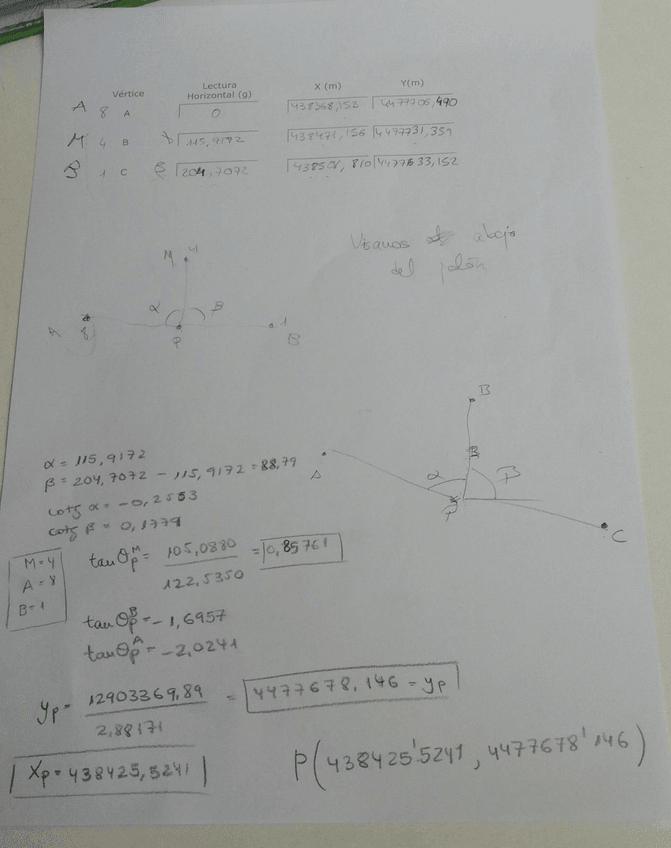 Vértice Lectura Horizontal (g) X (m) Y(m)
A 8 A 0 438368,152 4477706,490
M 4 B 115,9172 438471,156 4477731,359
B 1 C β 204,7072 4477633,152
Visamos abajo
del jalón
M 4
α β
A 8 P 1 B
B
α β
A P C
α = 115,9172
β = 204,7072 - 115,9172 = 88,79
cotg α = -0,2553
cotg β = 0,1779
M=4
A=8
B=1
tan θ_P^M = 105,0880 / 122,5350 = 0,85761
tan θ_P^B = -1,6957
tan θ_P^A = -2,0241
y_P = 12903369,89 / 2,88171 = 4477678,146 = y_P
X_P = 438425,5241
P(438425'5241, 4477678'146)